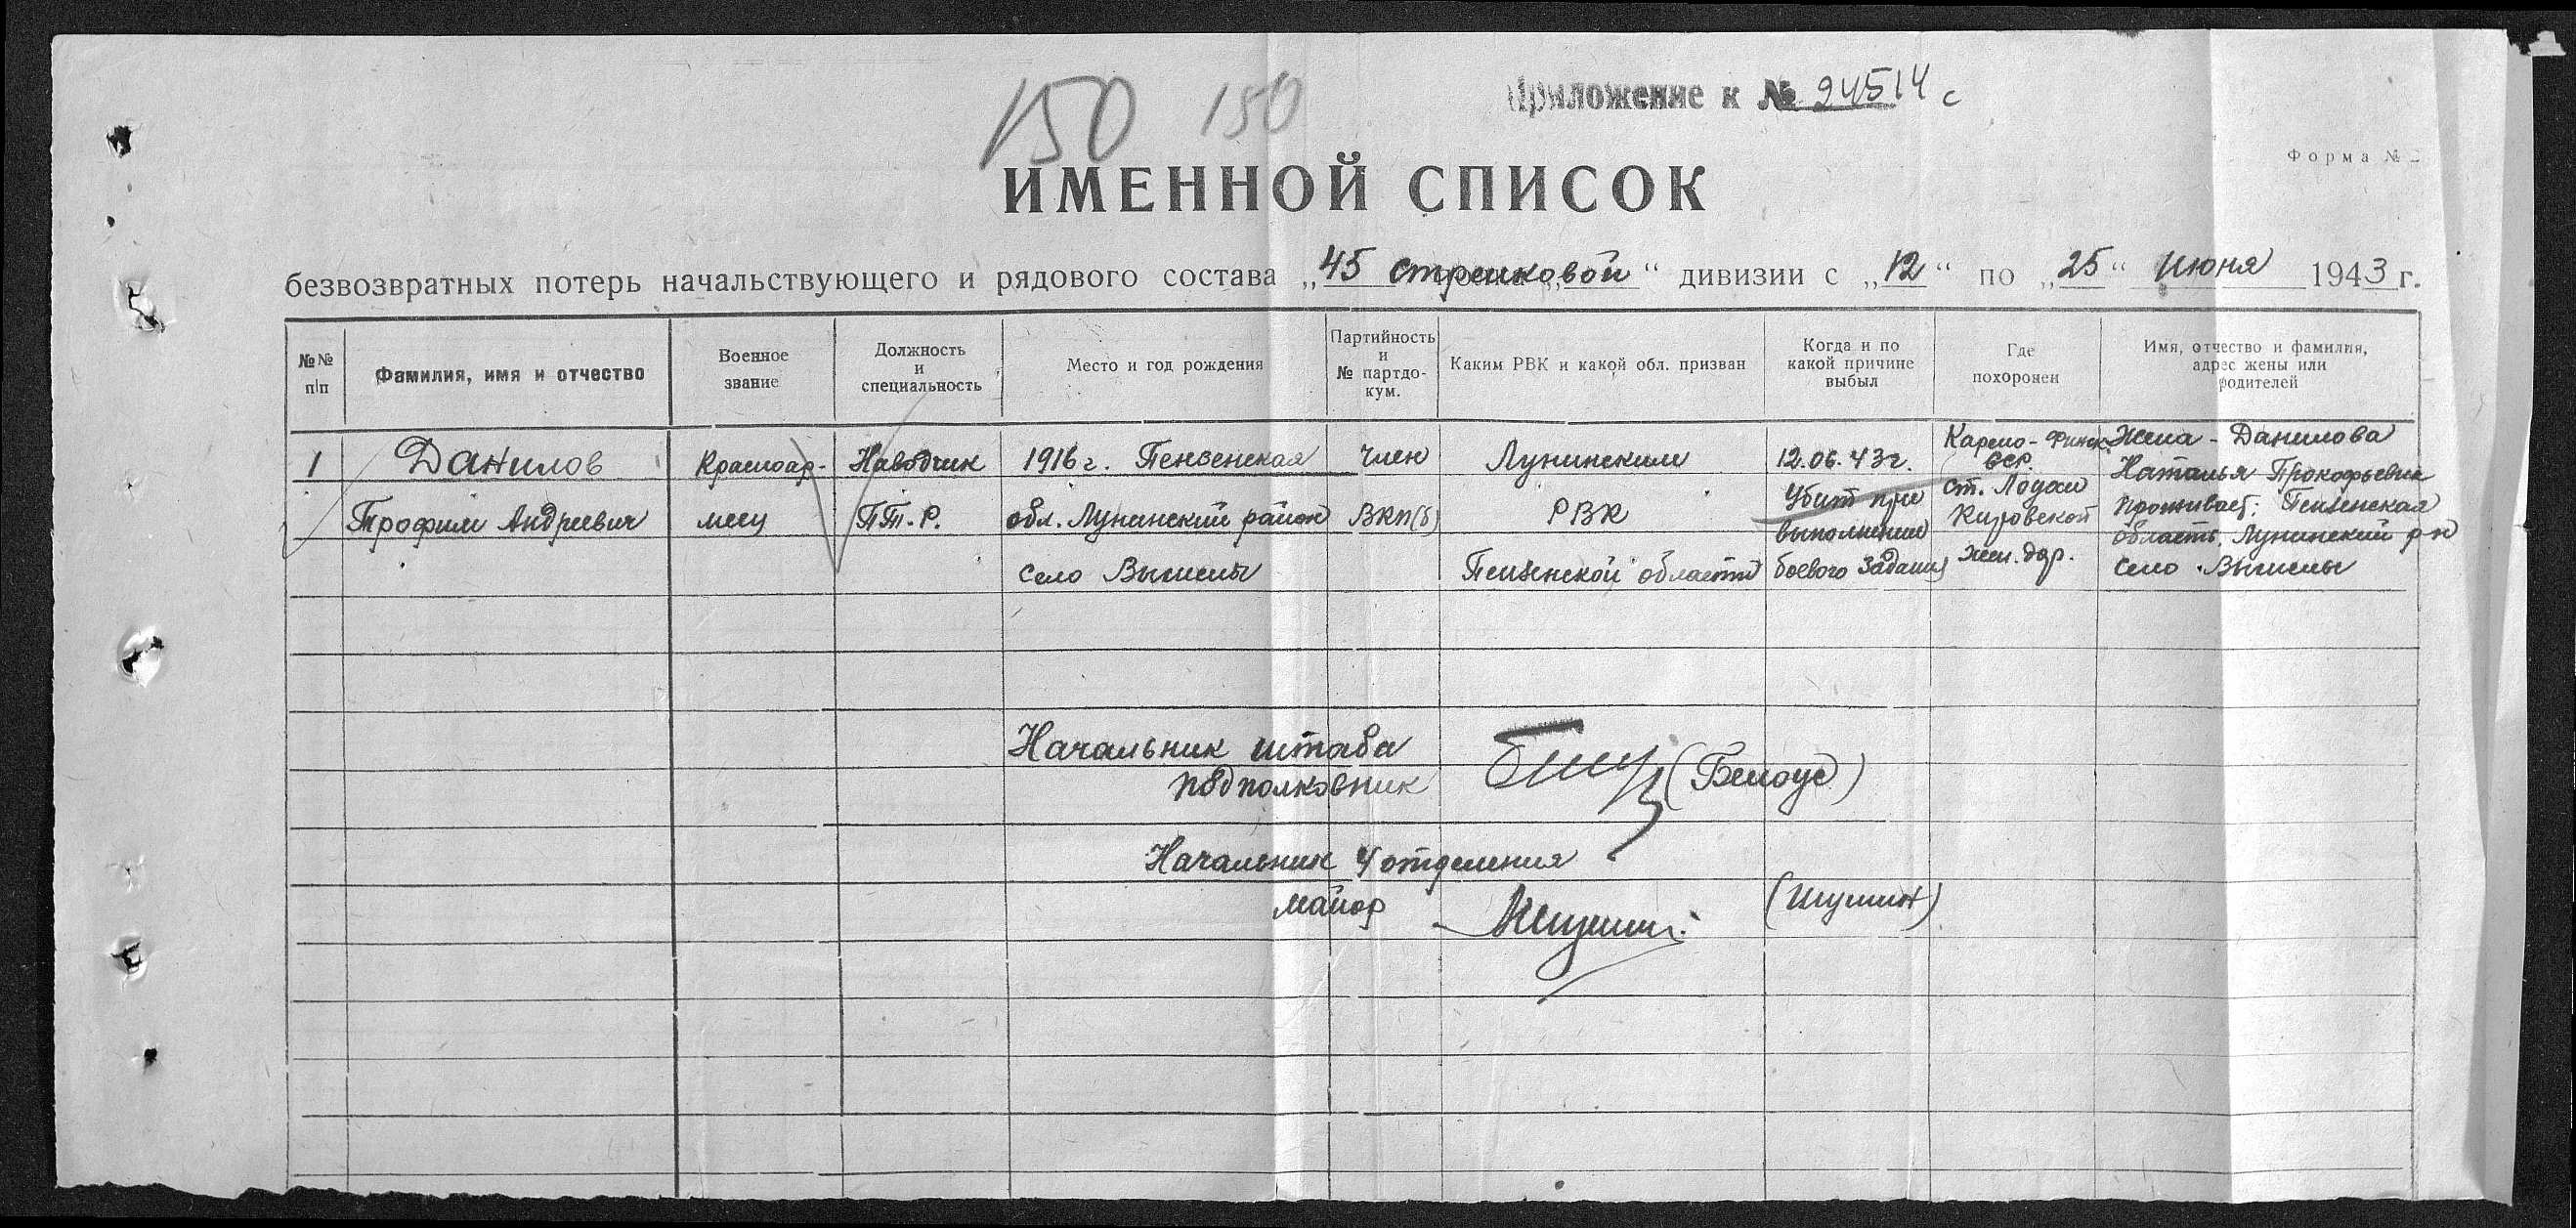 150 150
Приложение к № 24514 с
Форма №
ИМЕННОЙ СПИСОК
безвозвратных потерь начальствующего и рядового состава „45 стрелковой“ дивизии с „12“ по „25“ июня 1943 г.
№№ п/п
Фамилия, имя и отчество
Военное звание
Должность и специальность
Место и год рождения
Партийность и № партдо-кум.
Каким РВК и какой обл. призван
Когда и по какой причине выбыл
Где похоронен
Имя, отчество и фамилия, адрес жены или родителей
1
Данилов
Трофим Андреевич
Красноар-
меец
Наводчик
ПТ.Р.
1916 г. Пензенская
обл. Лунинский район
село Вышелы
Член
ВКП(б)
Лунинским
РВК
Пензенской области
12.06.43 г.
Убит при
выполнении
боевого задания
Карело-Финск.
ССР.
ст. Лоухи
Кировской
жел. дор.
Жена - Данилова
Наталья Прокофьевна
проживает: Пензенская
область. Лунинский р-н
село Вышелы
Начальник штаба
подполковник (Белоус)
Начальник 4 отделения
майор (Шушин)